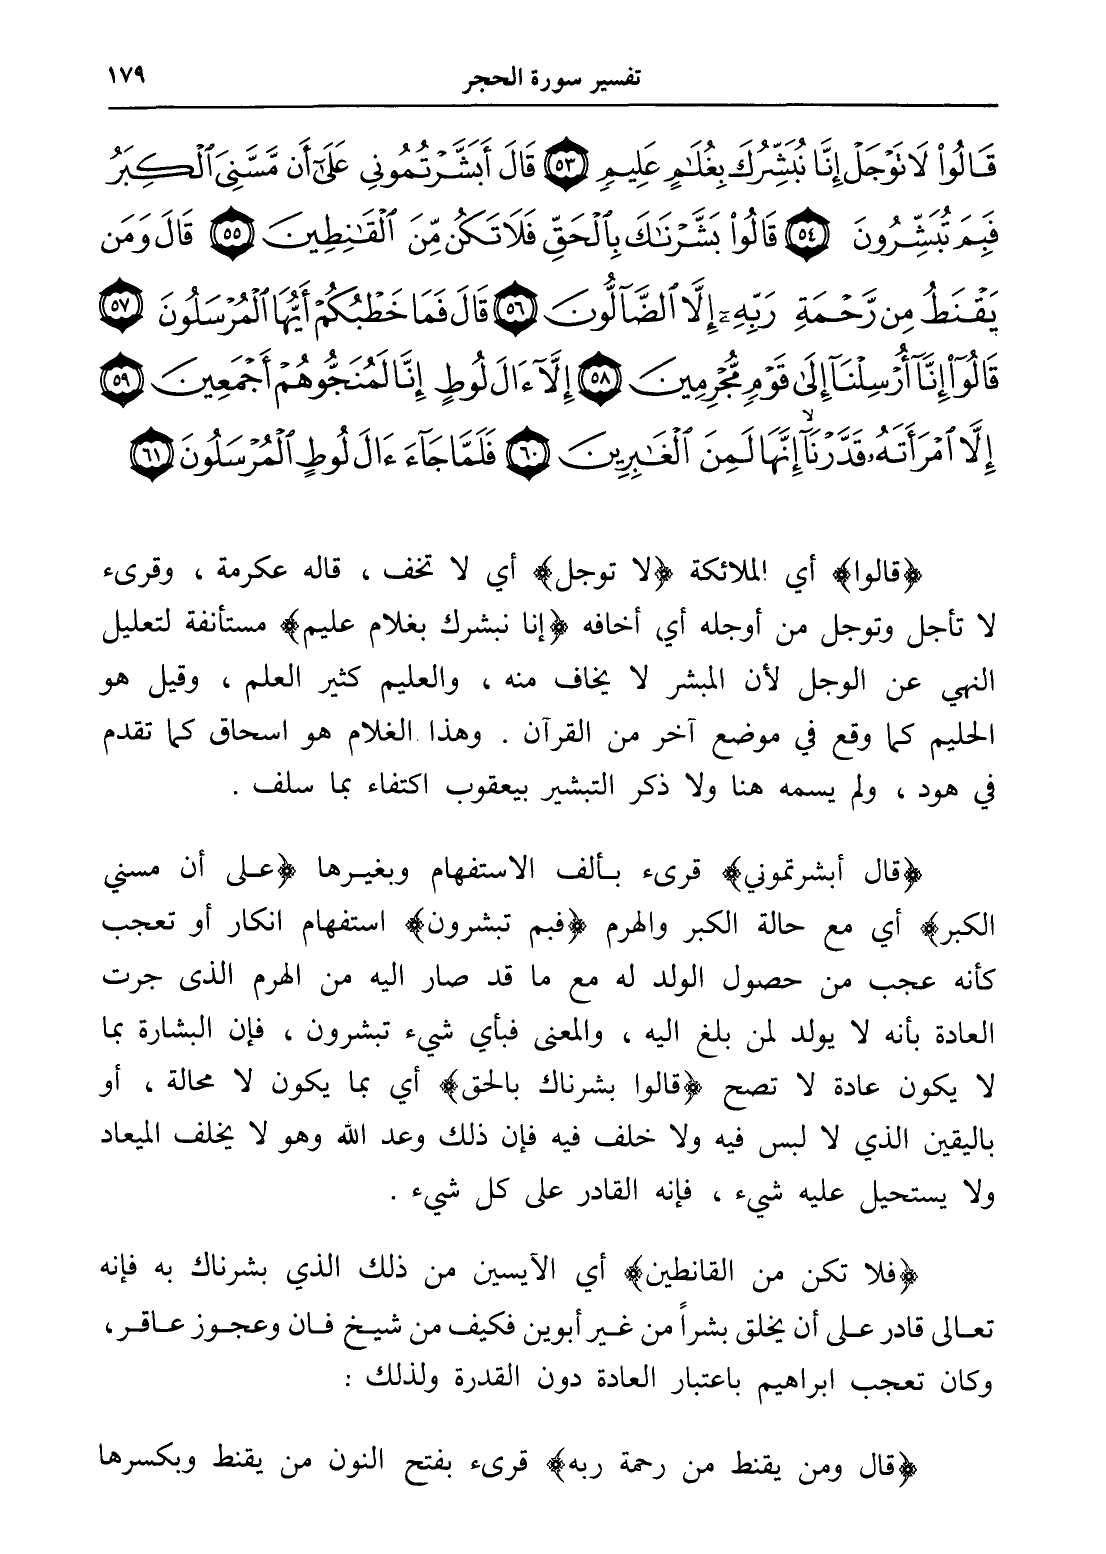 تفسير سورة الحجر ١٧٩
قَالُواْ لَا تَوْجَلْ إِنَّا نُبَشِّرُكَ بِغُلَٰمٍ عَلِيمٍ ٥٣ قَالَ أَبَشَّرْتُمُونِي عَلَىٰٓ أَن مَّسَّنِىَ ٱلْكِبَرُ
فَبِمَ تُبَشِّرُونَ ٥٤ قَالُواْ بَشَّرْنَٰكَ بِٱلْحَقِّ فَلَا تَكُن مِّنَ ٱلْقَٰنِطِينَ ٥٥ قَالَ وَمَن
يَقْنَطُ مِن رَّحْمَةِ رَبِّهِۦٓ إِلَّا ٱلضَّآلُّونَ ٥٦ قَالَ فَمَا خَطْبُكُمْ أَيُّهَا ٱلْمُرْسَلُونَ ٥٧
قَالُوٓاْ إِنَّآ أُرْسِلْنَآ إِلَىٰ قَوْمٍ مُّجْرِمِينَ ٥٨ إِلَّآ ءَالَ لُوطٍ إِنَّا لَمُنَجُّوهُمْ أَجْمَعِينَ ٥٩
إِلَّا ٱمْرَأَتَهُۥ قَدَّرْنَآ ۙ إِنَّهَا لَمِنَ ٱلْغَٰبِرِينَ ٦٠ فَلَمَّا جَآءَ ءَالَ لُوطٍ ٱلْمُرْسَلُونَ ٦١
﴿قالوا﴾ أي الملائكة ﴿لا توجل﴾ أي لا تخف ، قاله عكرمة ، وقرىء
لا تأجل وتوجل من أوجله أي أخافه ﴿إنا نبشرك بغلام عليم﴾ مستأنفة لتعليل
النهي عن الوجل لأن المبشر لا يخاف منه ، والعليم كثير العلم ، وقيل هو
الحليم كما وقع في موضع آخر من القرآن . وهذا الغلام هو اسحاق كما تقدم
في هود ، ولم يسمه هنا ولا ذكر التبشير بيعقوب اكتفاء بما سلف .
﴿قال أبشرتموني﴾ قرىء بألف الاستفهام وبغيرها ﴿على أن مسني
الكبر﴾ أي مع حالة الكبر والهرم ﴿فبم تبشرون﴾ استفهام انكار أو تعجب
كأنه عجب من حصول الولد له مع ما قد صار اليه من الهرم الذى جرت
العادة بأنه لا يولد لمن بلغ اليه ، والمعنى فبأي شيء تبشرون ، فإن البشارة بما
لا يكون عادة لا تصح ﴿قالوا بشرناك بالحق﴾ أي بما يكون لا محالة ، أو
باليقين الذي لا لبس فيه ولا خلف فيه فإن ذلك وعد الله وهو لا يخلف الميعاد
ولا يستحيل عليه شيء ، فإنه القادر على كل شيء .
﴿فلا تكن من القانطين﴾ أي الآيسين من ذلك الذي بشرناك به فإنه
تعالى قادر على أن يخلق بشراً من غير أبوين فكيف من شيخ فان وعجوز عاقر ،
وكان تعجب ابراهيم باعتبار العادة دون القدرة ولذلك :
﴿قال ومن يقنط من رحمة ربه﴾ قرىء بفتح النون من يقنط وبكسرها